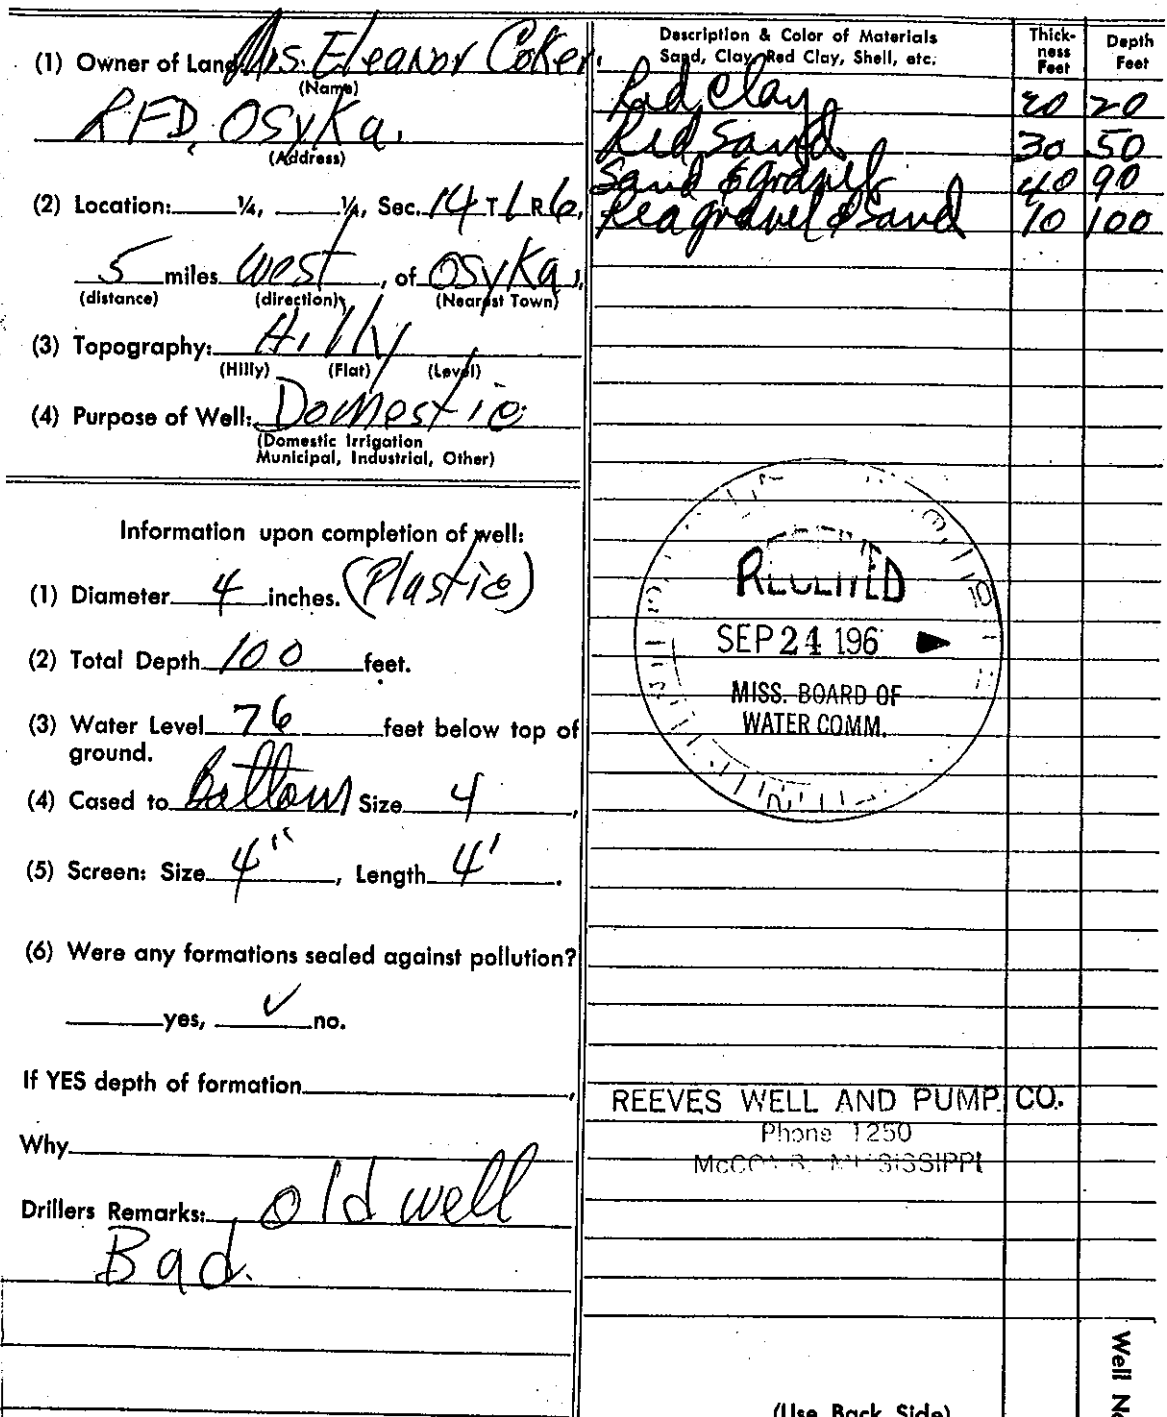 (1) Owner of Land Mrs. Eleanor Coker.
(Name)
RFD, Osyka.
(Address)
(2) Location: ¼, ¼, Sec. 14 T 1 R 6,
5 miles west, of Osyka,
(distance) (direction) (Nearest Town)
(3) Topography: Hilly
(Hilly) (Flat) (Level)
(4) Purpose of Well: Domestic
(Domestic Irrigation
Municipal, Industrial, Other)
Information upon completion of well:
(1) Diameter 4 inches. (Plastic)
(2) Total Depth 100 feet.
(3) Water Level 76 feet below top of
ground.
(4) Cased to Bottom Size 4,
(5) Screen: Size 4", Length 4'.
(6) Were any formations sealed against pollution?
yes, ✓ no.
If YES depth of formation,
Why
Drillers Remarks: old well
Bad.
Description & Color of Materials
Sand, Clay, Red Clay, Shell, etc.
Thick-
ness
Feet
Depth
Feet
Red Clay 20 20
Red Sand 30 50
Sand & gravel 40 90
Pea gravel & Sand 10 100
RECEIVED
SEP 24 196
MISS. BOARD OF
WATER COMM.
REEVES WELL AND PUMP CO.
Phone 1250
McCOMB, MISSISSIPPI
Well No
(Use Back Side)